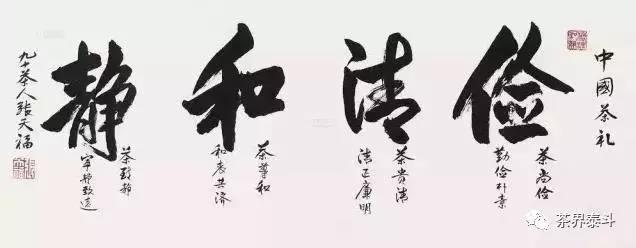 中國茶礼
俭
茶尚俭
勤俭朴素
清
茶贵清
清正廉明
和
茶尊和
和衷共济
静
茶致静
宁静致远
九十茶人張天福
茶界泰斗